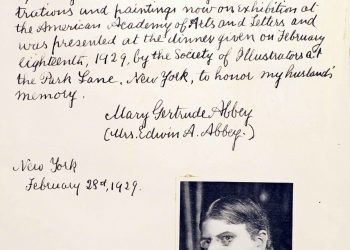 trations and paintings now on exhibition at
the American Academy of Arts and Letters and
was presented at the dinner given on February
eighteenth, 1929, by the Society of Illustrators at
the Park Lane, New York, to honor my husband's
memory.
Mary Gertrude Abbey
(Mrs. Edwin A. Abbey.)
New York
February 28th, 1929.